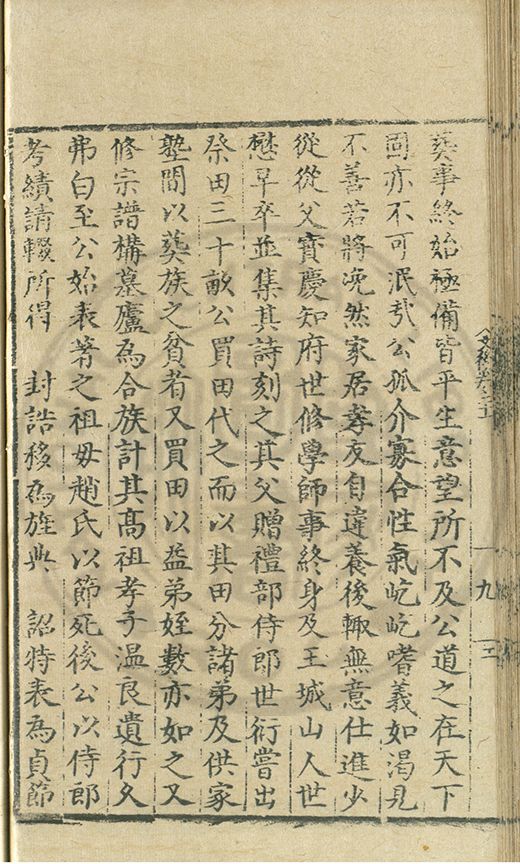 葬事終始極備皆平生意望所不及公道之在天下
固亦不可泯哉公孤介寡合性氣屹屹嗜義如渴見
不善若將浼然家居孝友自違養後輙無意仕進少
從從父寳慶知府世修學師事終身及王城山人世
懋早卒並集其詩刻之其父贈禮部侍郎世衍嘗出
祭田三十畝公買田代之而以其田分諸弟及供家
塾間以葬族之貧者又買田以益弟姪數亦如之又
修宗譜構墓廬為合族計其髙祖孝子温良遺行久
弗白至公始表著之祖毋趙氏以節死後公以侍郎
考績請輟所得 封誥移為旌典 詔特表為貞節
九